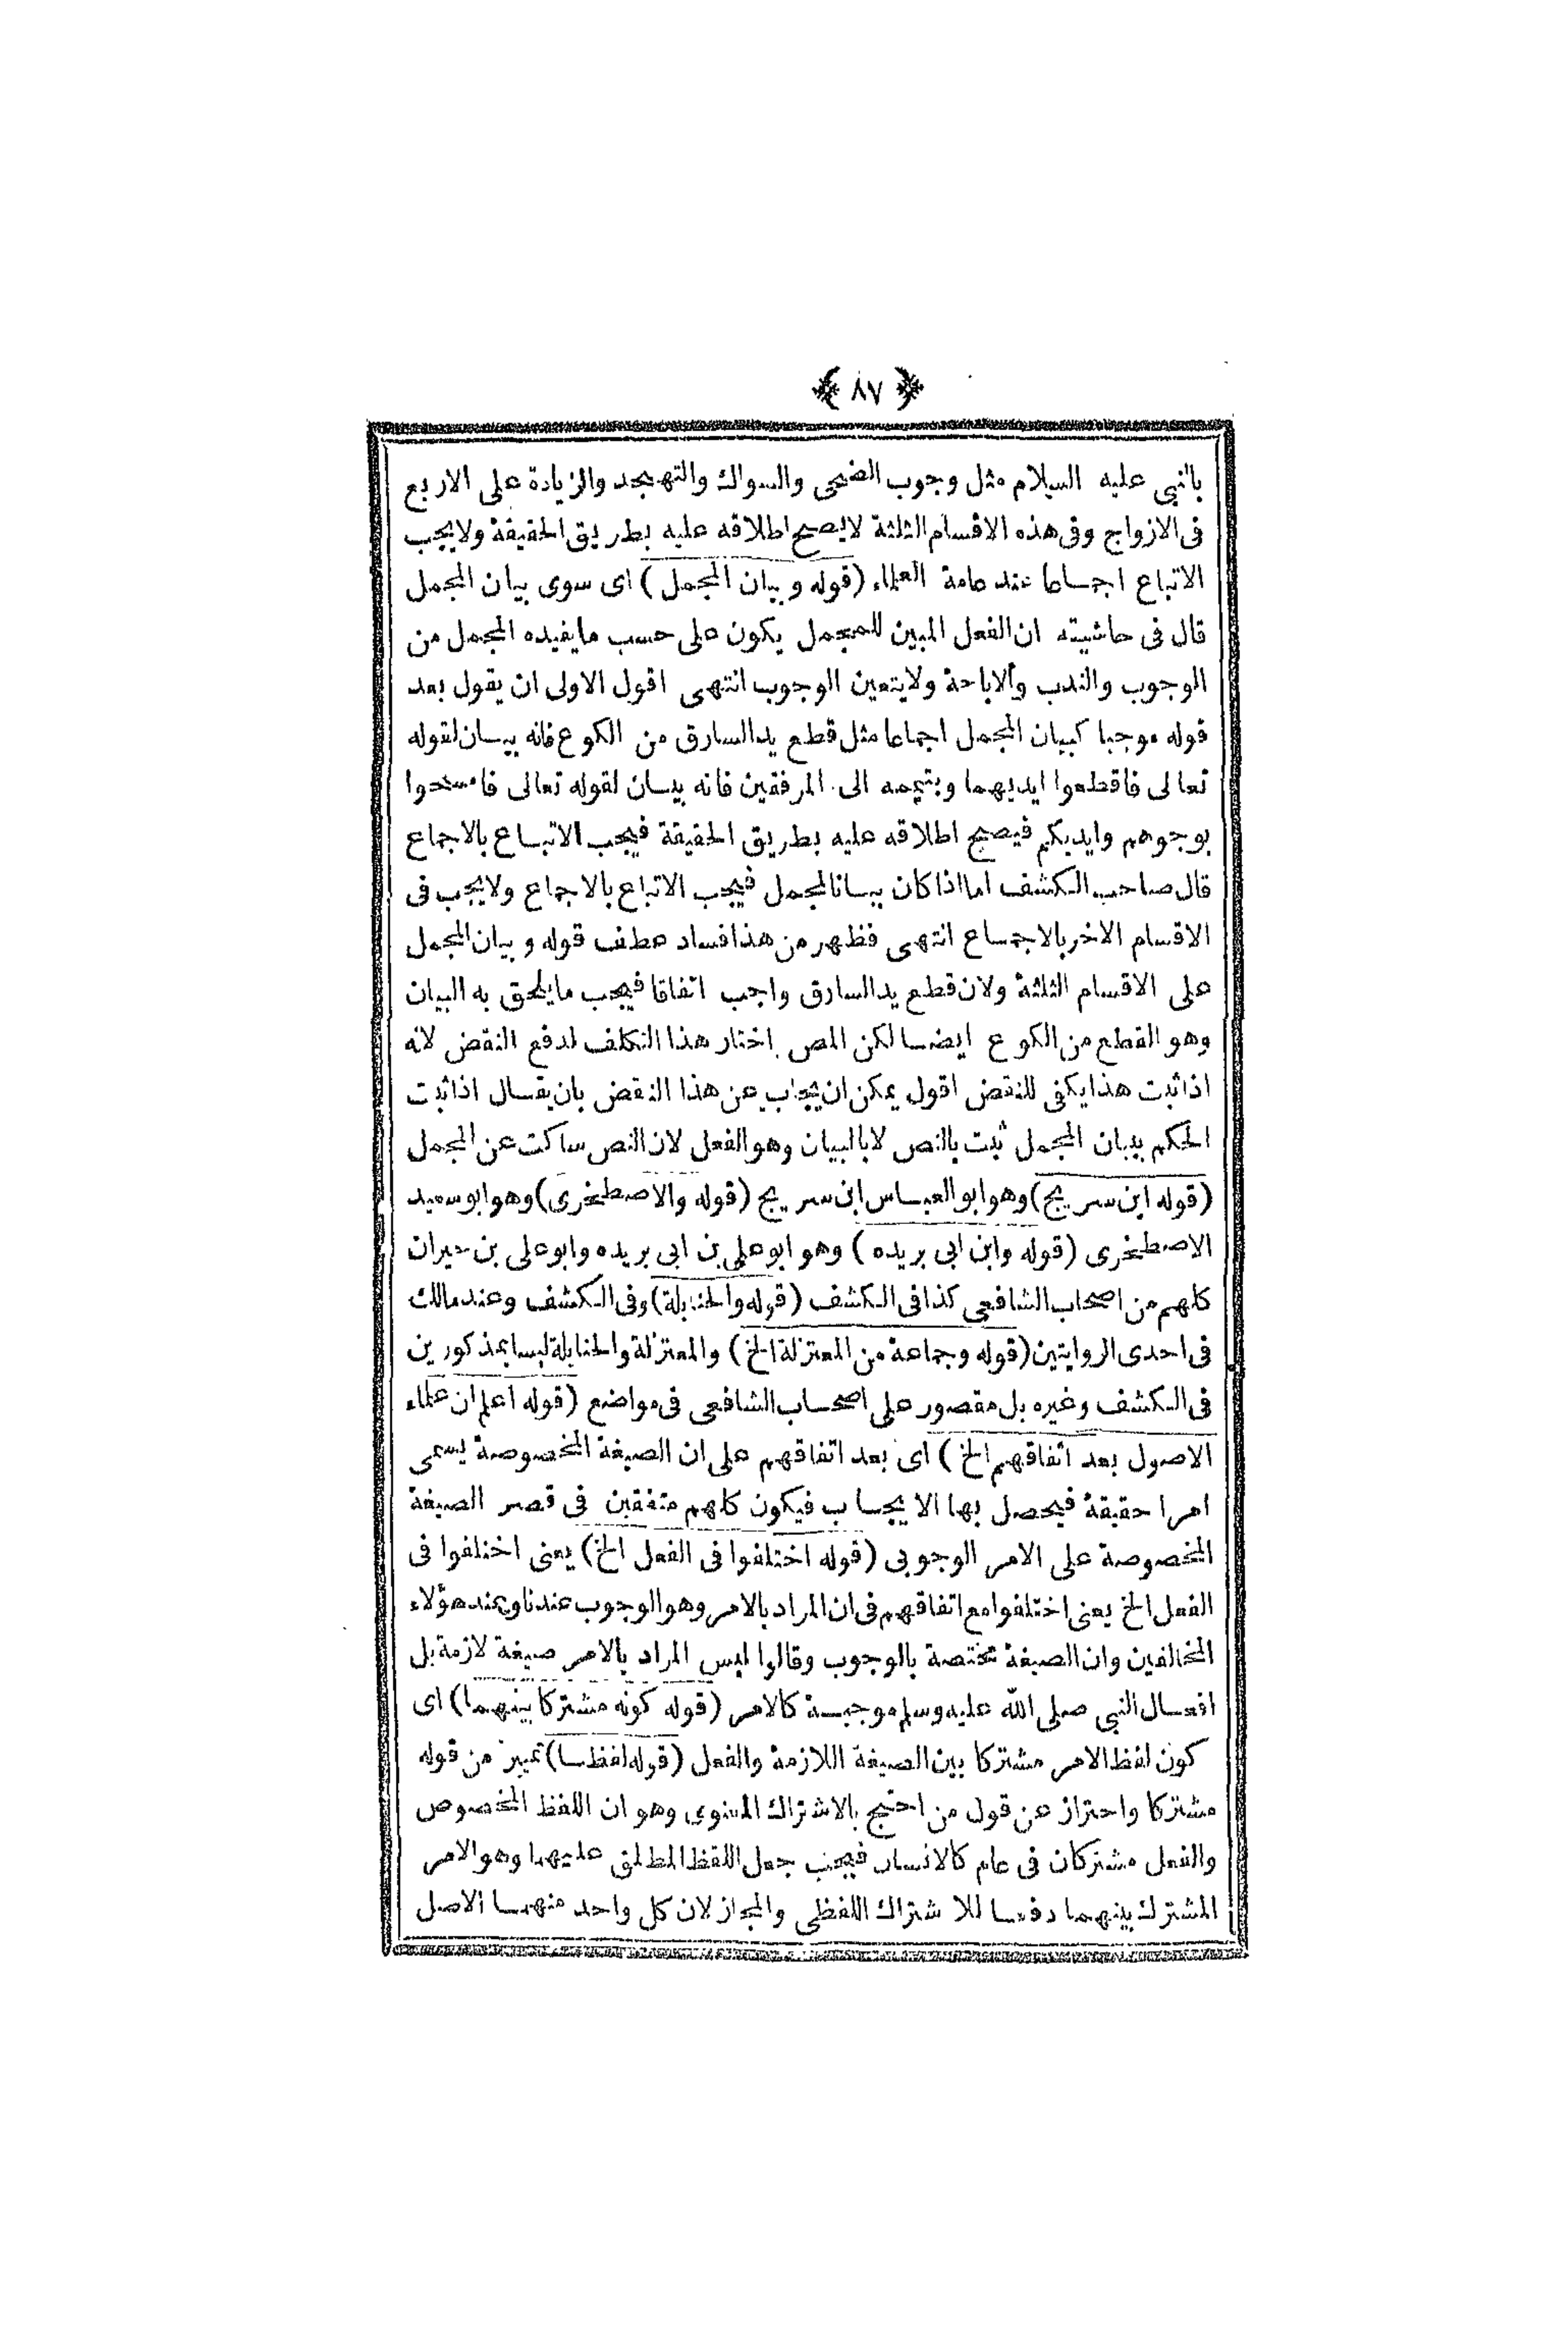 ﴿ ٨٧ ﴾
بالنبي عليه السلام مثل وجوب الضحى والسواك والتهجد والزيادة على الاربع
فى الازواج وفى هذه الاقسام الثلثة لايصح اطلاقه عليه بطريق الحقيقة ولايجب
الاتباع اجماعا عند عامة العلماء (قوله وبيان المجمل) اى سوى بيان المجمل
قال فى حاشيته ان الفعل المبين للمجمل يكون على حسب مايفيده المجمل من
الوجوب والندب والاباحة ولايتعين الوجوب انتهى اقول الاولى ان يقول بعد
قوله موجبا كبيان المجمل اجماعا مثل قطع يد السارق من الكوع فانه بيان لقوله
تعالى فاقطعوا ايديهما وبتيممه الى المرفقين فانه بيان لقوله تعالى فامسحوا
بوجوهم وايديكم فيصح اطلاقه عليه بطريق الحقيقة فيجب الاتباع بالاجماع
قال صاحب الكشف اما اذا كان بيانا لمجمل فيجب الاتباع بالاجماع ولايجب فى
الاقسام الاخر بالاجماع انتهى فظهر من هذا فساد عطف قوله وبيان المجمل
على الاقسام الثلثة ولان قطع يد السارق واجب اتفاقا فيجب مايلحق به البيان
وهو القطع من الكوع ايضا لكن المص اختار هذا التكلف لدفع النقض لانه
اذا ثبت هذا يكفى للنقض اقول يمكن ان يجاب عن هذا النقض بان يقال اذا ثبت
الحكم ببيان المجمل ثبت بالنص لا بالبيان وهو الفعل لان النص ساكت عن المجمل
(قوله ابن سريج) وهو ابو العباس ابن سريج (قوله والاصطخرى) وهو ابو سعيد
الاصطخرى (قوله وابن ابى بريده) وهو ابو على بن ابى بريده وابو على بن خيران
كلهم من اصحاب الشافعى كذا فى الكشف (قوله والحنابلة) وفى الكشف وعند مالك
فى احدى الروايتين (قوله وجماعة من المعتزلة الخ) والمعتزلة والحنابلة ليسا بمذكورين
فى الكشف وغيره بل مقصور على اصحاب الشافعى فى مواضع (قوله اعلم ان علماء
الاصول بعد اتفاقهم الخ) اى بعد اتفاقهم على ان الصيغة المخصوصة يسمى
امرا حقيقة فيحصل بها الايجاب فيكون كلهم متفقين فى قصر الصيغة
المخصوصة على الامر الوجوبى (قوله اختلفوا فى الفعل الخ) يعنى اختلفوا فى
الفعل الخ يعنى اختلفوا مع اتفاقهم فى ان المراد بالامر وهو الوجوب عندنا وعند هؤلاء
المخالفين وان الصيغة مختصة بالوجوب وقالوا ليس المراد بالامر صيغة لازمة بل
افعال النبى صلى الله عليه وسلم موجبة كالامر (قوله كونه مشتركا بينهما) اى
كون لفظ الامر مشتركا بين الصيغة اللازمة والفعل (قوله لفظا) تمييز من قوله
مشتركا واحتراز عن قول من احتج بالاشتراك المعنوى وهو ان اللفظ المخصوص
والفعل مشتركان فى عام كالانسان فيجب جعل اللفظ المطلق عليهما وهو الامر
المشترك بينهما دفعا للاشتراك اللفظى والمجاز لان كل واحد منهما الاصل